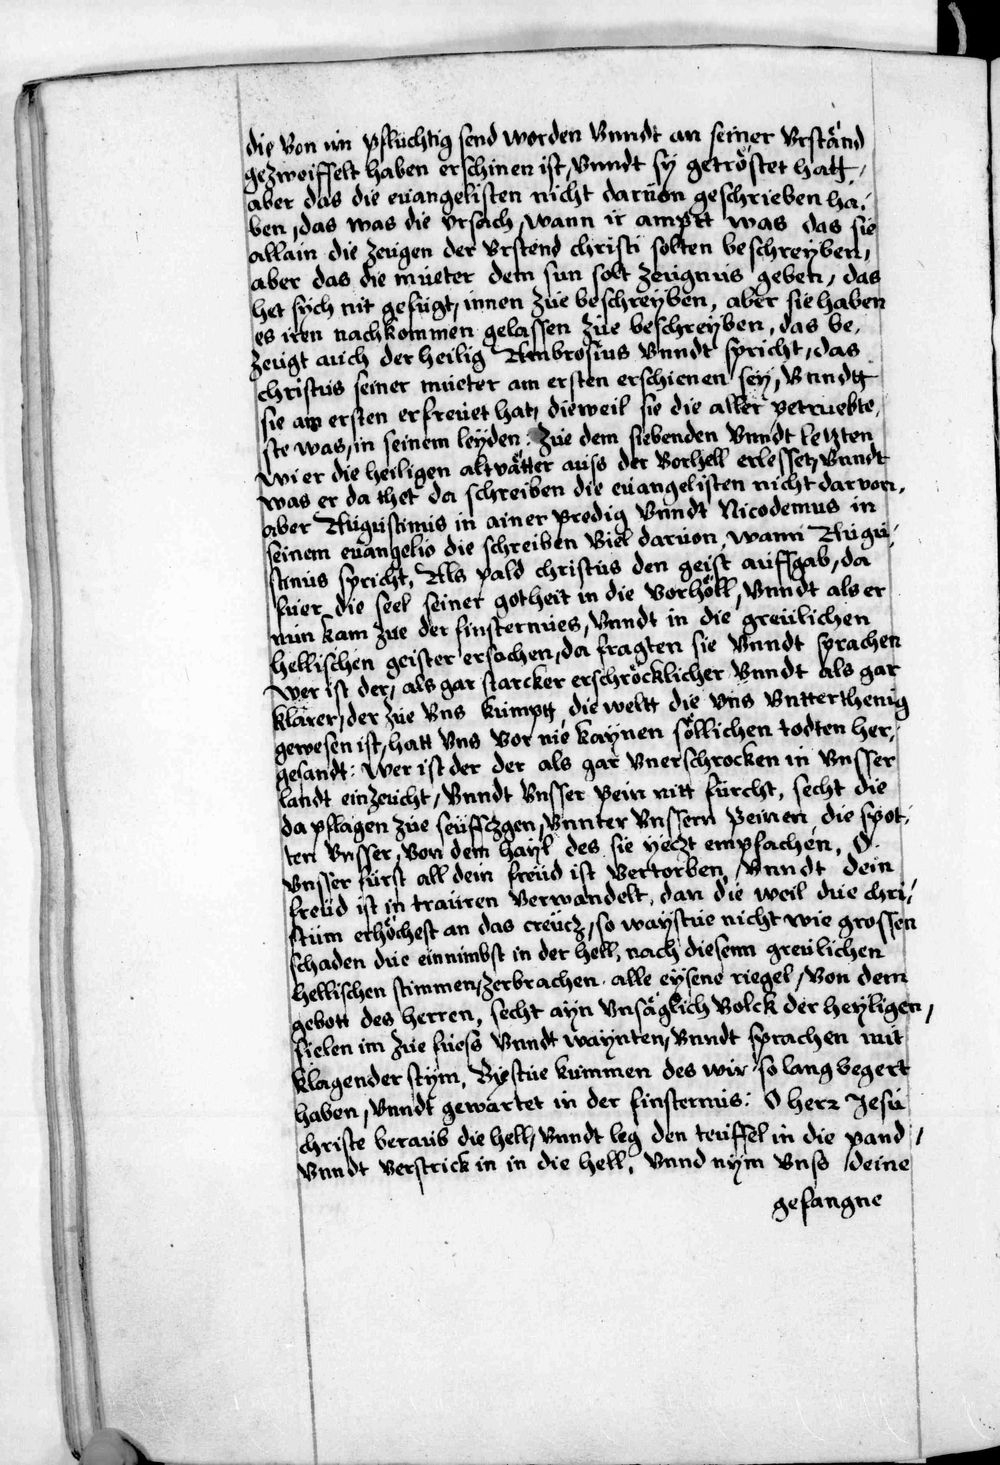 die von im pflüchtig send worden vnndt an seiner vrständ
gezweiffelt haben erschinen ist, vnndt sy getröstet hatt,
aber das die euangelisten nicht daruon geschrieben ha,
ben, das was die vrsach, wann ir amptt was das sie
allain die zeügen der vrstend christi solten beschreyben,
aber das die müeter dem sun solt zeügnus geben, das
het sych nit gefügt, innen züe beschreyben, aber sie haben
es iren nachkommen gelassen züe beschreyben, das be,
zeugt auch der heilig Ambrosius vnndt spricht, das
christus seiner müeter am ersten erschienen sey, vnndtt
sie am ersten erfreüet hat, dieweil sie die aller petruebte,
ste was, in seinem leyden. Züe dem siebenden vnndt letzten
wi er die heiligen altvätter auss der vorhell erlesset, vnndt
was er da thet da schreiben die euangelisten nicht darvon,
aber Augustinus in ainer predig vnndt Nicodemus in
seinem euangelio die schreiben viel daruon, wann Augu,
stinus spricht, Als pald christus den geist auffgab, da
fuer die seel seiner gotheit in die vorhöll, vnndt als er
nun kam züe der finsternües, vnndt in die greülichen
hellischen geister ersachen, da fragten sie vnndt sprachen
wer ist der, als gar starcker erschröcklicher vnndt als gar
klarer, der züe vns kümptt, die weltt die vns vntterthenig
gewesen ist, hatt vns vor nie kaynen söllichen todten her,
gesandt: wer ist der der als gar vnerschrocken in vnsser
landt einzeücht, vnndt vnsser pein nitt fürcht, secht die
da pflagen züe seüffzgen, vnnter vnssern peinen die spot,
ten vnsser, von dem hayl des sie yeczt empfachen, O
vnsser fürst all dein freüd ist vertorben, vnndt dein
freüd ist in trauren verwandelt, dan die weil due chri,
stüm erhöchest an das creücz, so waystüe nicht wie grossen
schaden due einnimbst in der hell, nach diesem greülichen
hellischen stimmen, zerbrachen alle eysene riegel, von dem
gebott des herren, secht ayn vnsäglich volck der heyligen,
fielen im züe füess vnndt waynten, vnndt sprachen mit
klagender stym, Bistüe kummen des wir so lang begert
haben, vnndt gewartet in der finsternus: O herr Jesu
christe beraub die hell, vnndt leg den teüffel in die pand,
vnndt verstrick in in die hell, vnnd nym vnss deine
gefangne